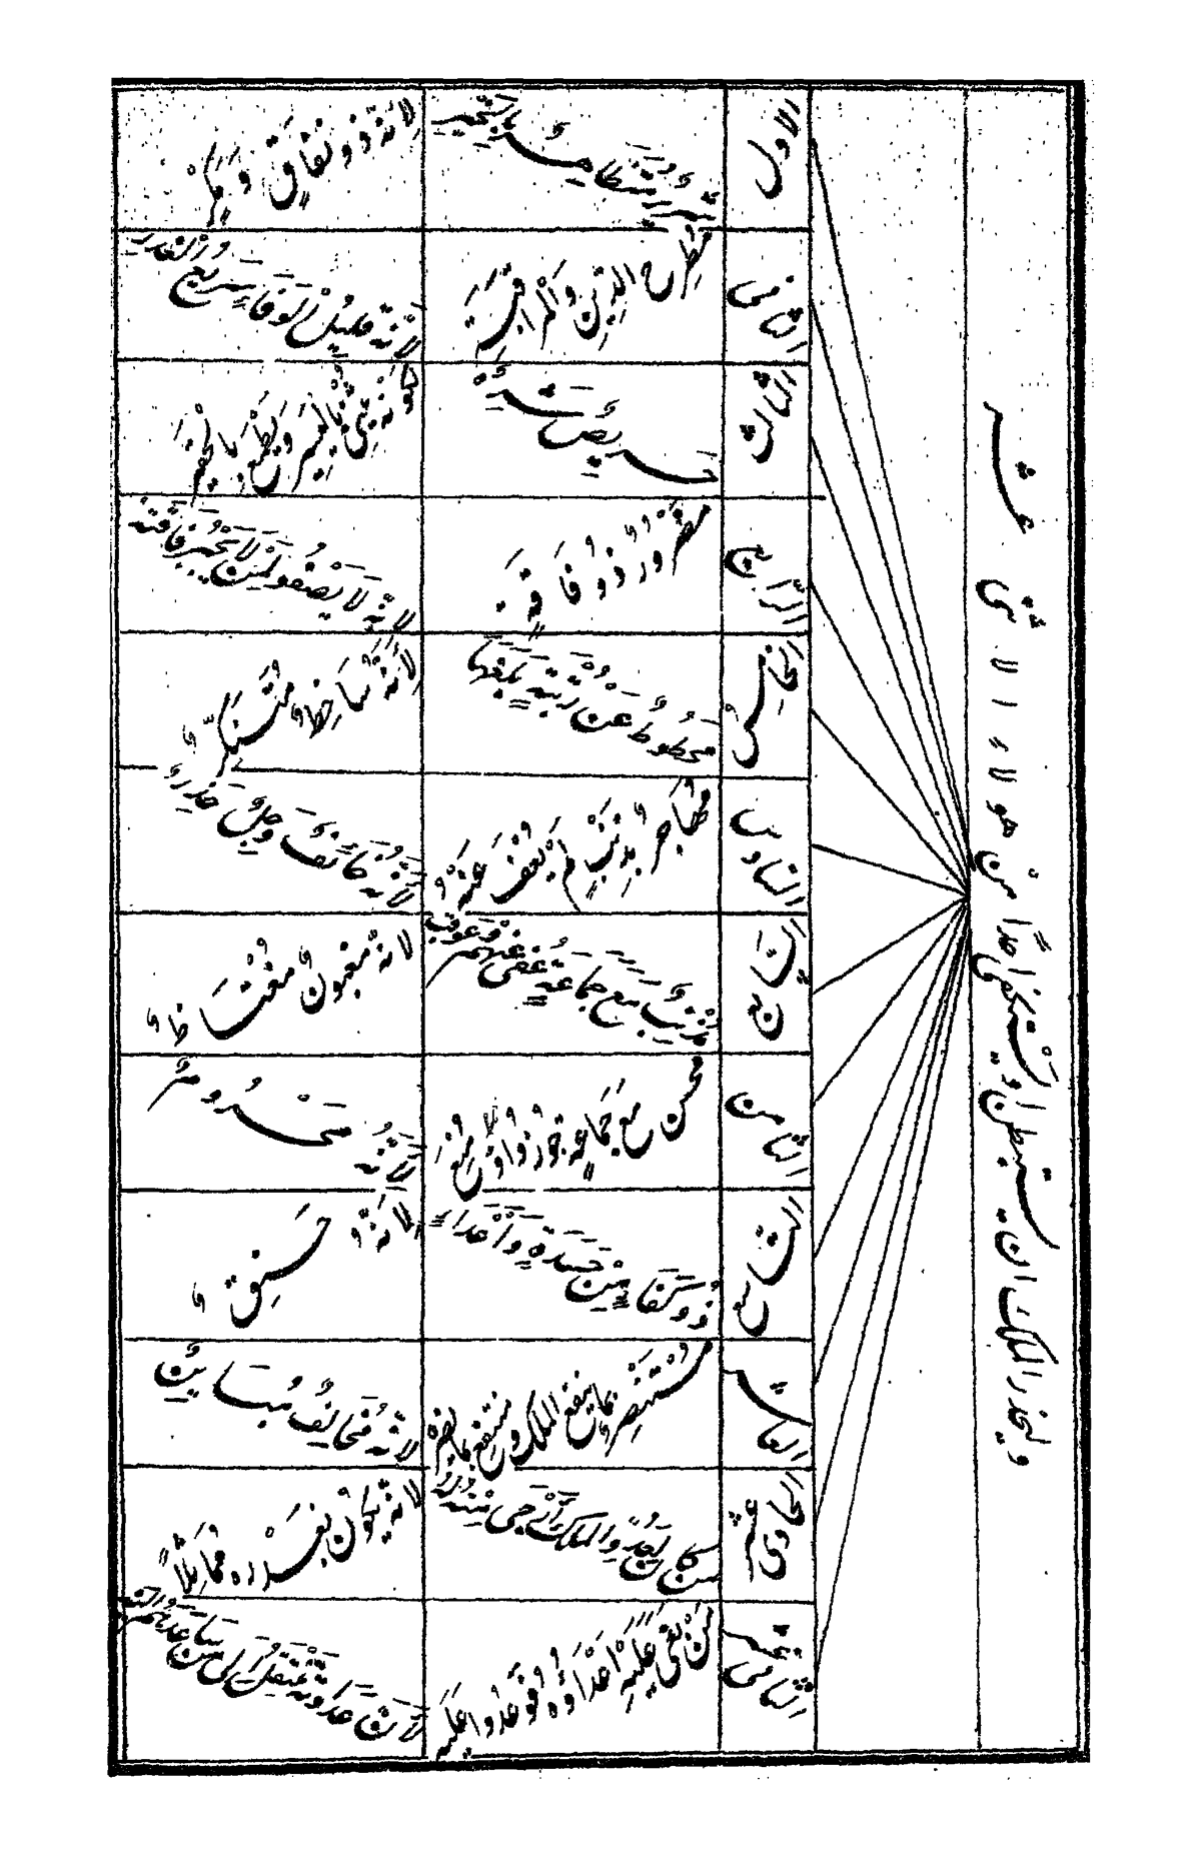 وليحذر الملك ان يستبطن او يستكفى احداً من هولاء الاثنى عشر
الاول
شرير متكا بالخير
لانه ذو نفاق و
الثانى
مطرح الدين والمراقبة
لانه قليل الوفاء سريع الغدر
الثالث
حريص شره
لانه يبيع باليسير ويطمع بالحقير
الرابع
مضرور ذو فاقة
لانه لا يصفو لمن لا يجبر فاقته
الخامس
محطوط عن رتبة بلغها
لانه ساخط متنكر
السادس
مهاجر بذنب لم يعف عنه
لانه خائف وجل حذر
السابع
مذنب مع جماعة عفى عنهم وعوقب
لانه مغبون مغتاظ
الثامن
محسن مع جماعة جوزوا ومنع
لانه محروم
التاسع
ذو كفاء من حسدة واعداء
لانه حنق
العاشر
مستضر بما ينفع الملك ومنتفع بما يضره
لانه مخالف مباين
الحادى عشر
من كان لعدو الملك ارجى منه له
لانه يكون بغدره مماثلاً
الثانى عشر
من بغى عليه اعداؤه وقووا عليه
لان عداوته تنتقل الى من ساعدهم